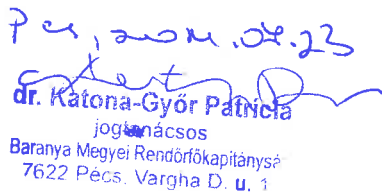 Pécs, 2024.04.23
dr. Katona-Győr Patrícia
jogtanácsos
Baranya Megyei Rendőrfőkapitánysá
7622 Pécs. Vargha D. u. 1